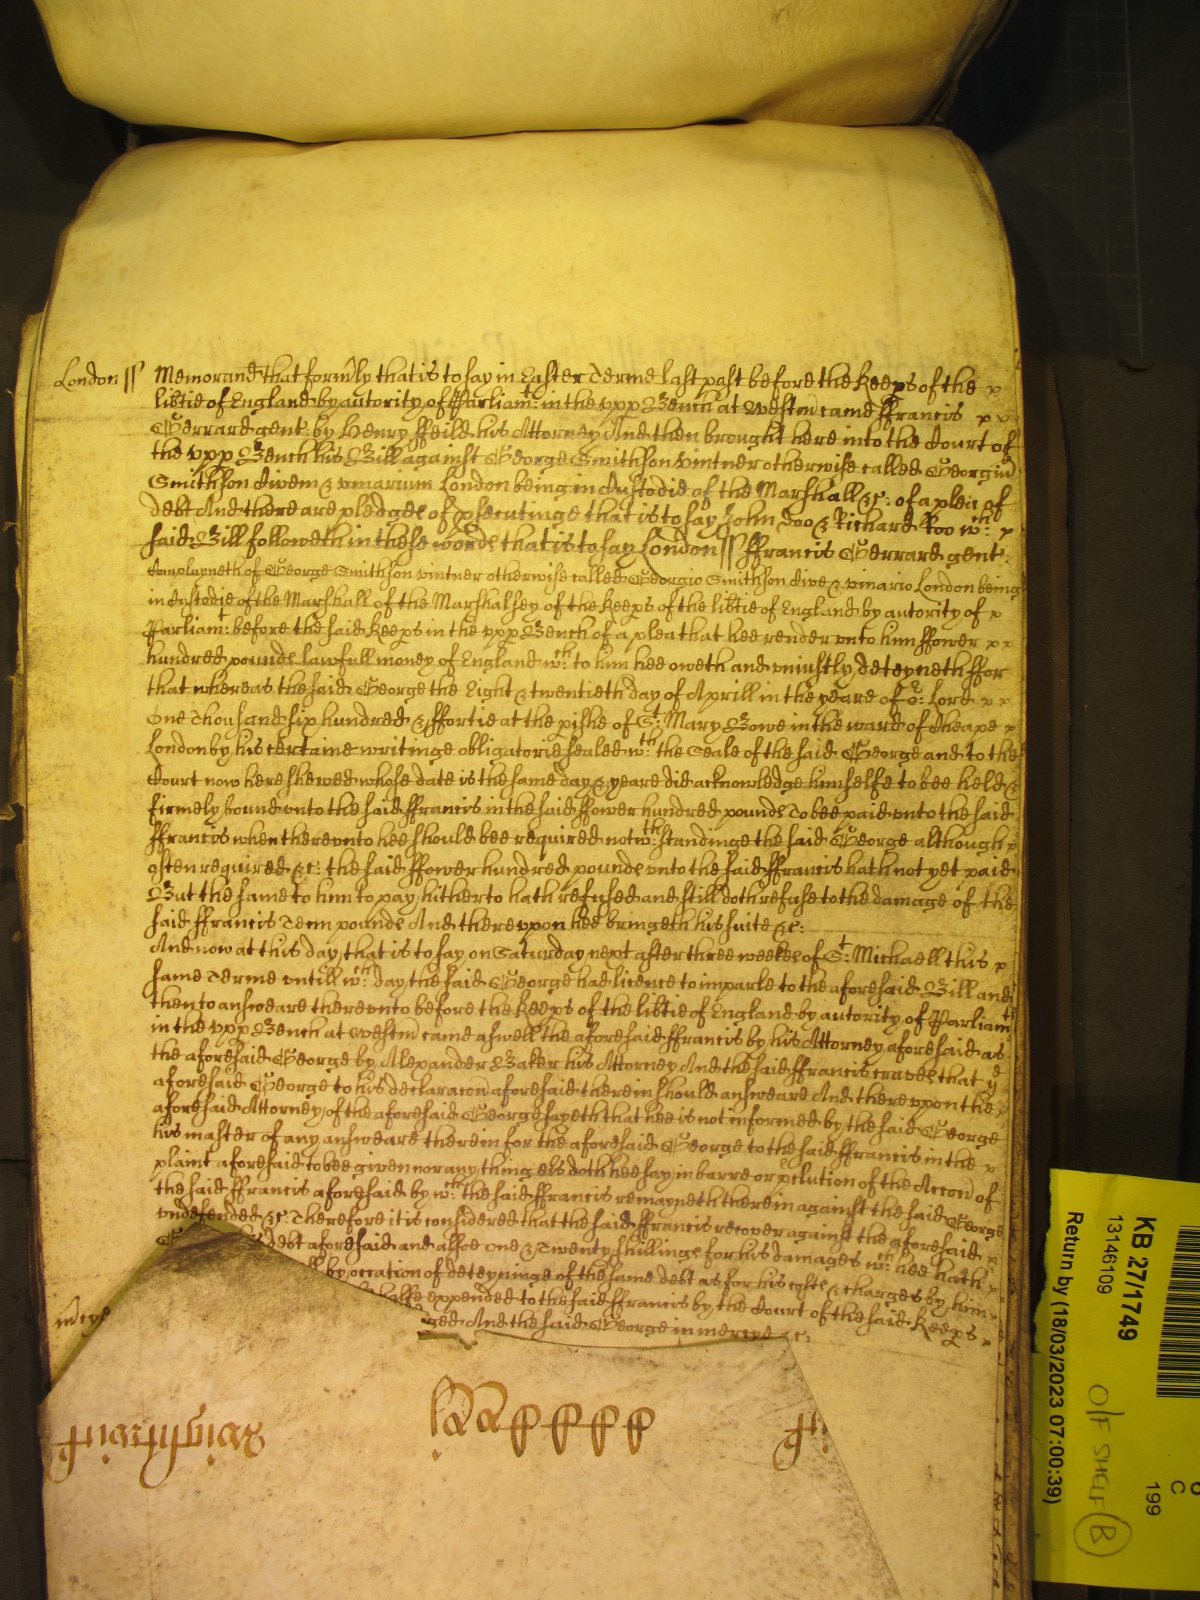 London ss Memorand that form'ly that is to say in Easter Terme last past before the Keep's of the x
lib'tie of England by autority of Parliam't: in the vpp Bench at Westm' came ffrancis x x
Gerrard gent: by Henry ffeild his Attorney And then brought here into the Court of
the vpp Bench his Bill against George Smithson vintner otherwise called Georgiu'
Smithson Civem & vinarium London being in Custodie of the Marshall &c: of a plea of
debt And there are pledges of p'secutinge that is to say John Doo & Richard Roo w'ch: x
said Bill followeth in these words that is to say London ss ffrancis Gerrard gent:
Complayneth of George Smithson vintner otherwise called Georgio Smithson Cive & vinario London being
in Custodie of the Marshall of the Marshalsey of the Keep's of the lib'tie of England by autority of x
Parliam't: before the said Keep's in the vpp Bench of a plea that hee render vnto him ffower x x
hundred pounds lawfull money of England w'ch: to him hee oweth and vniustly deteyneth ffor
that whereas the said George the Eight & twentieth day of Aprill in the yeare of o'r: Lord x x
One Thousand six hundred & ffortie at the p'ishe of S't: Mary Bowe in the ward of Cheape x
London by his certaine writinge obligatorie sealed w'th: the Seale of the said George and to the
Court now here shewed whose date is the same day & yeare did acknowledge himselfe to bee held &
firmely bound vnto the said ffrancis in the said ffower hundred pounds To bee paid vnto the said
ffrancis when therevnto hee should bee required notw'th:standinge the said George although x
often required &c: the said ffower hundred pounds vnto the said ffrancis hath not yet paid
But the same to him to pay hitherto hath refused and still doth refuse to the damage of the
said ffrancis Tenn pounds And therevpon hee bringeth his suite &c:
And now at this day that is to say on Saturday next after three weekes of S't: Michaell this x
same Terme vntill w'ch: day the said George had licence to imparle to the aforesaid Bill and
then to answeare therevnto before the Keep's of the lib'tie of England by autority of Parliam't
in the vpp Bench at Westm' came aswell the aforesaid ffrancis by his Attorney aforesaid as
the aforesaid George by Alexander Baker his Attorney And the said ffrancis craves that y'e
aforesaid George to his declarac'on aforesaid therein should answeare And therevpon the x
aforesaid Attorney of the aforesaid George sayeth that hee is not informed by the said George
his master of any answeare therein for the aforesaid George to the said ffrancis in the x
plaint aforesaid to bee given nor any thing els doth hee say in barre or p'clution of the Acc'on of
the said ffrancis aforesaid by w'ch: the said ffrancis remayneth therein against the said George
vndefended &c: Therefore it is considered that the said ffrancis recover against the aforesaid x
debt aforesaid and alsoe one & Twenty shillings for his damages w'ch: hee hath x
by occation of deteyninge of the same debt as for his costs & charges by him
halfe expended to the said ffrancis by the Court of the said Keep's x
And the said George in mercye &c:
KB 27/1749
13146109
Return by (18/03/2023 07:00:39)
O/F SHELF B
C
199